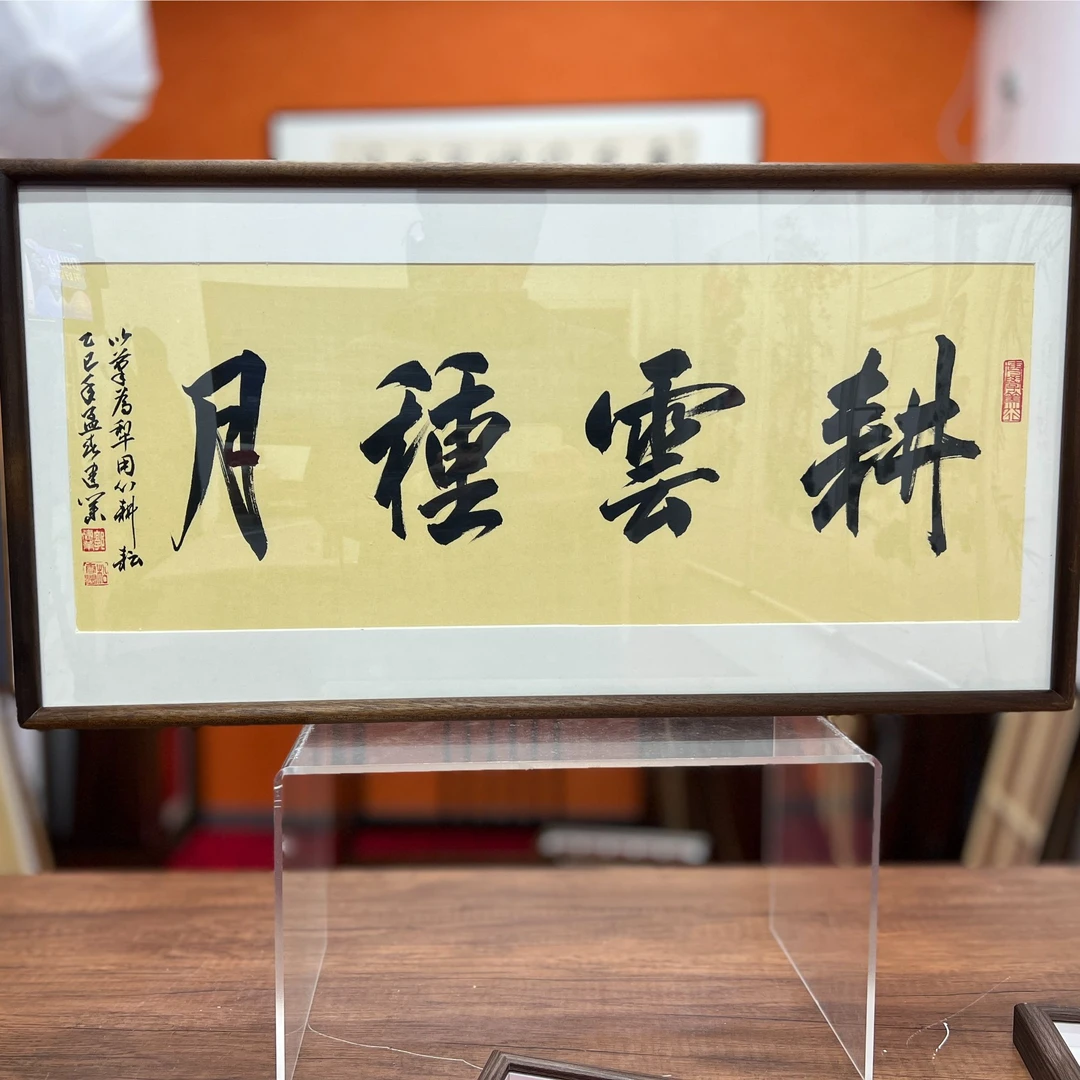 耕雲種月
以筆為犁用心耕耘
乙巳年孟春建業